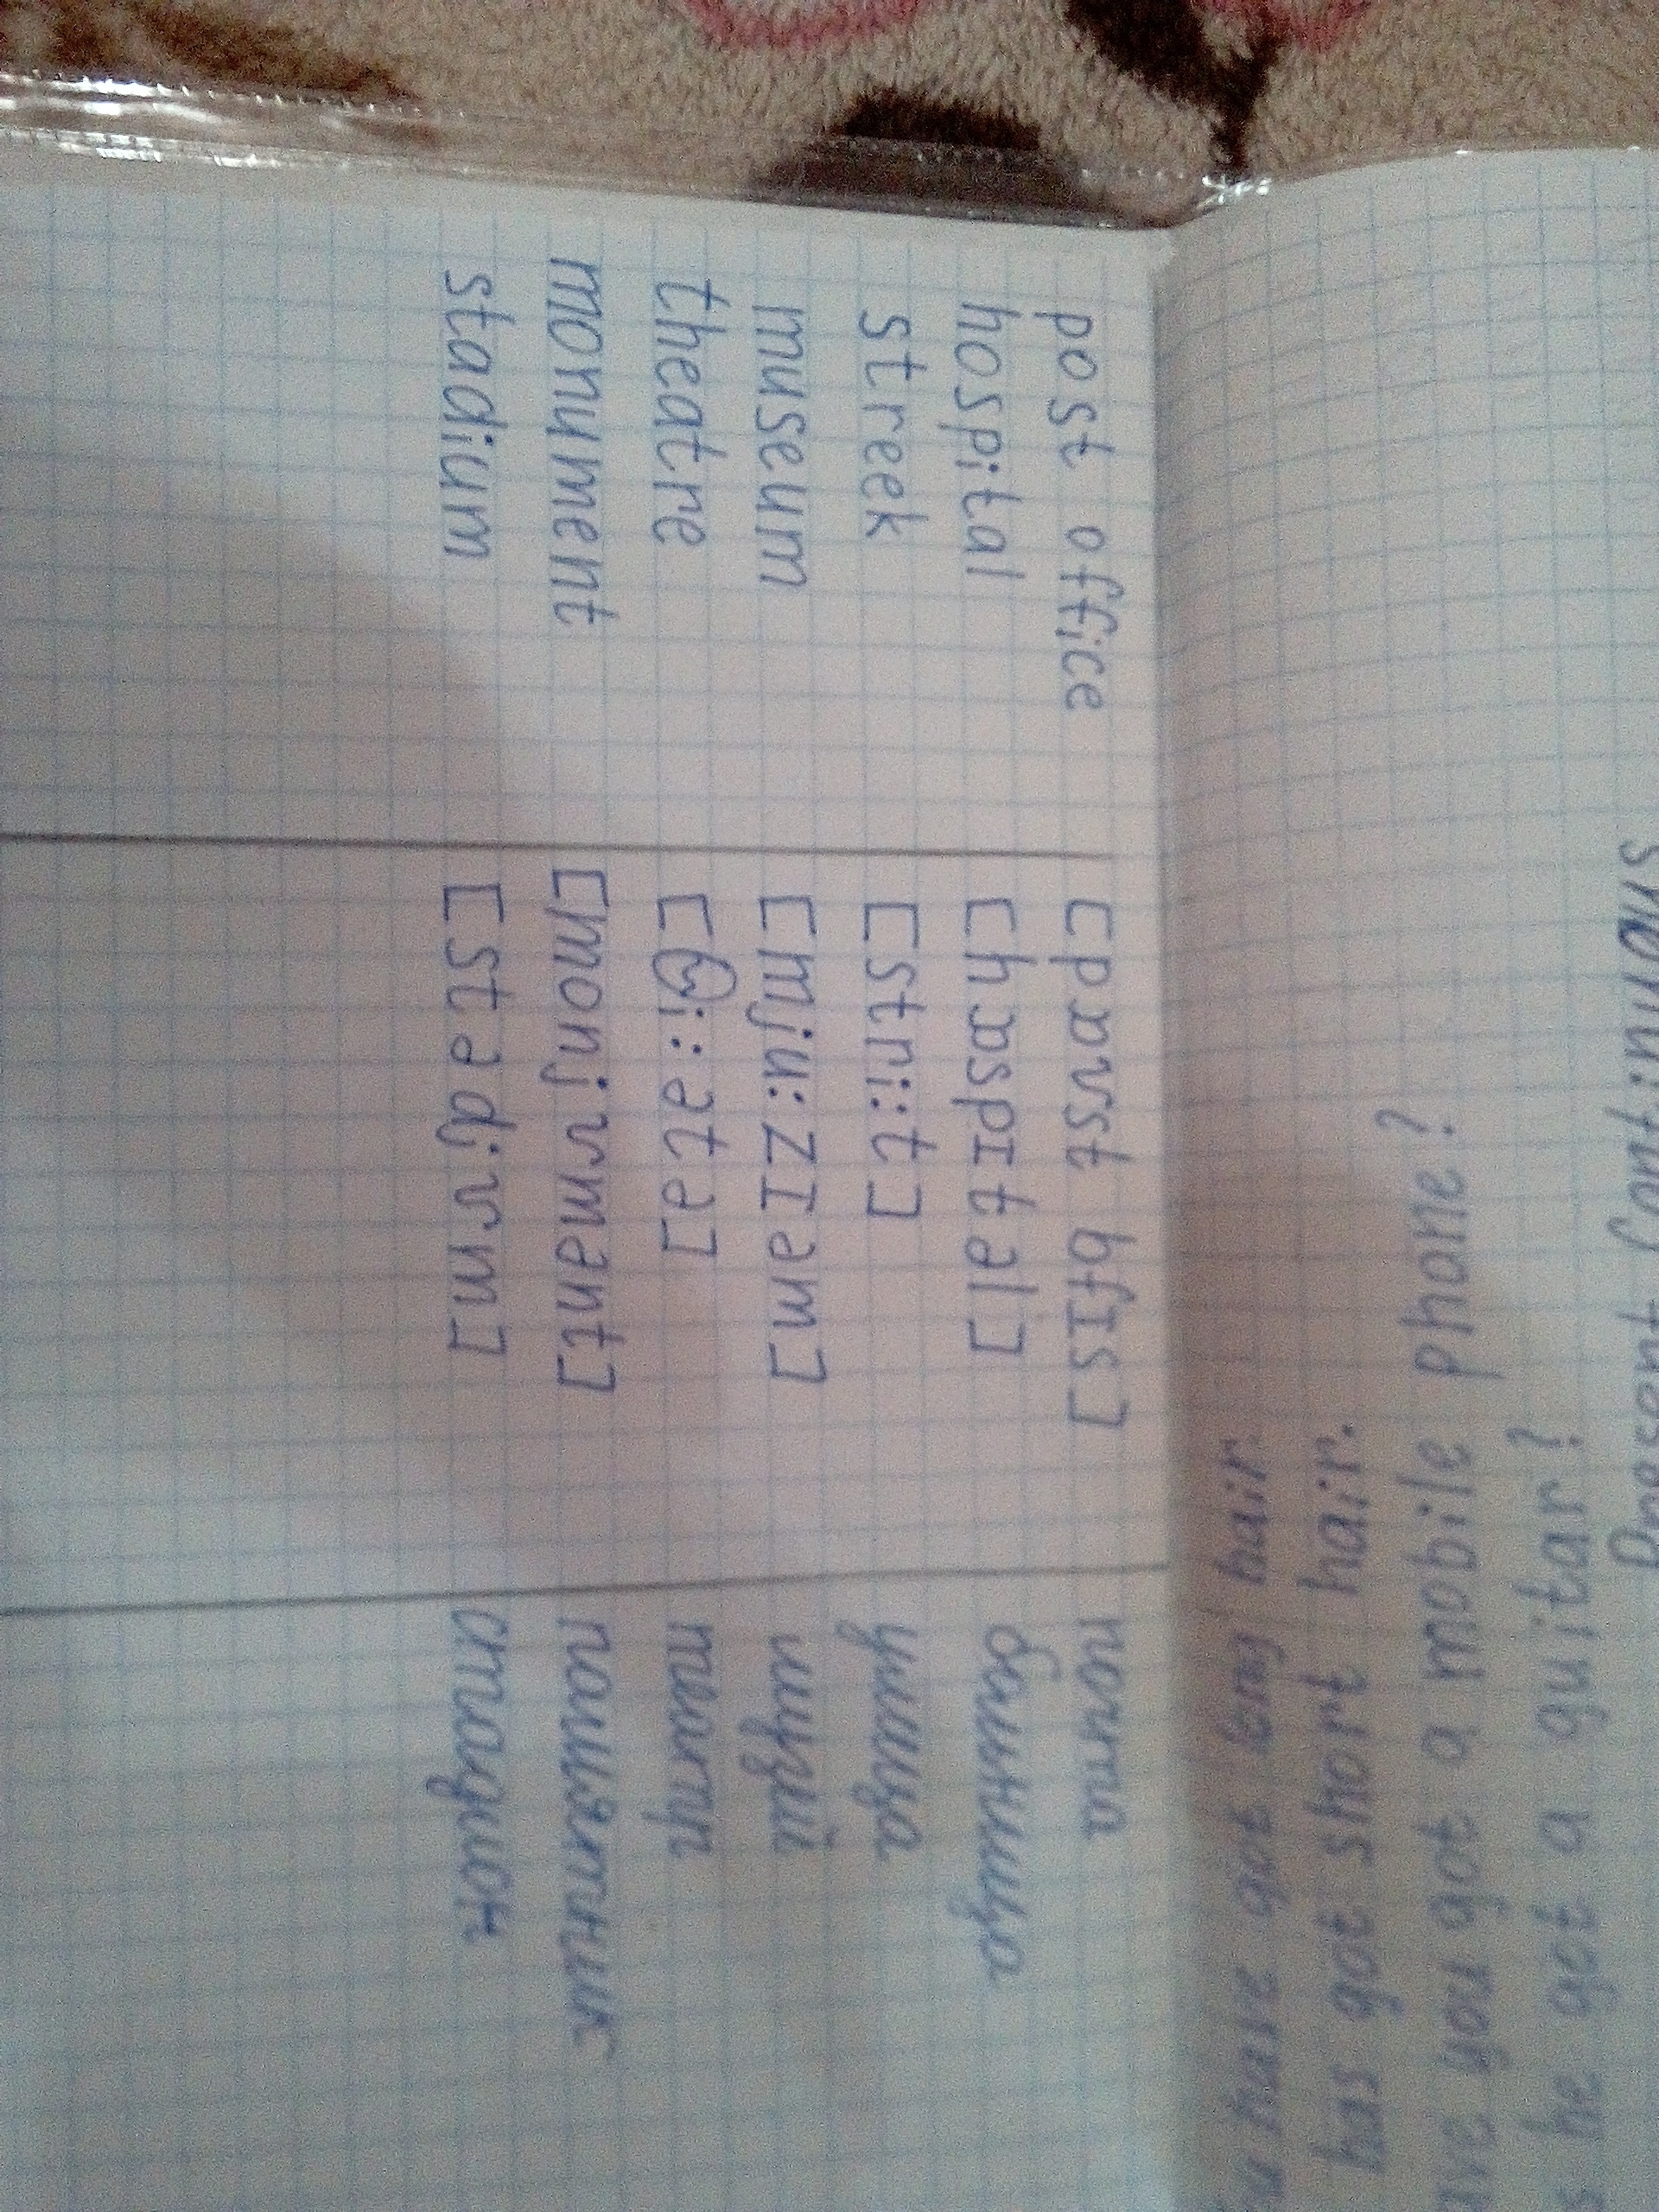 post office [pəʊst ɒfɪs] почта
hospital [hɒspɪtəl] больница
streek [stri:t] улица
museum [mju:zɪəm] музей
theatre [θi:ətə] театр
monument [monjʊmənt] памятник
stadium [stədiʊm] стадион
Present Continuous
he got a guitar?
you got a mobile phone?
has got short hair.
have got long hair.